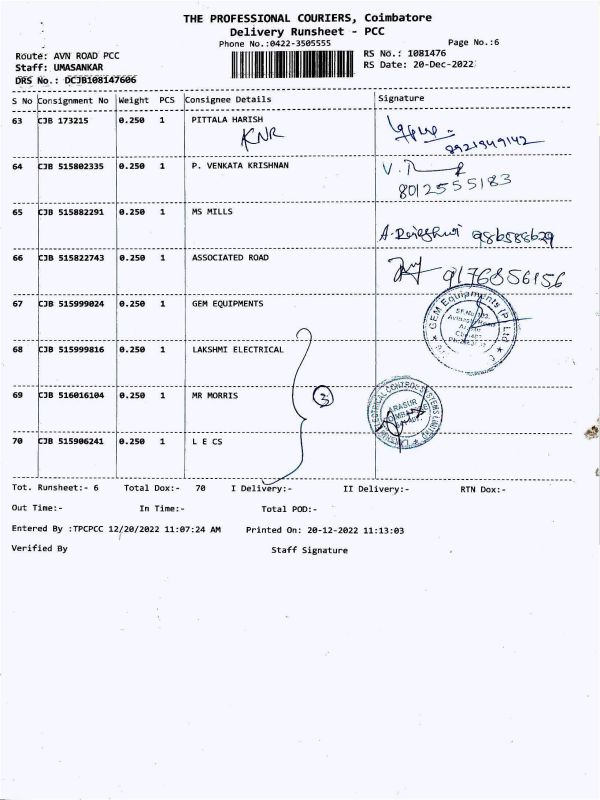 THE PROFESSIONAL COURIERS, Coimbatore
Delivery Runsheet - PCC
Phone No.:0422-3505555
Page No.:6
Route: AVN ROAD PCC
RS No.: 1081476
Staff: UMASANKAR
RS Date: 20-Dec-2022
DRS No.: DCJB108147606
S No Consignment No Weight PCS Consignee Details Signature
63 CJB 173215 0.250 1 PITTALA HARISH
KNR
8921949142
64 CJB 515802335 0.250 1 P. VENKATA KRISHNAN
8012555183
65 CJB 515882291 0.250 1 MS MILLS
66 CJB 515822743 0.250 1 ASSOCIATED ROAD
9176856156
67 CJB 515999024 0.250 1 GEM EQUIPMENTS
GEM Equipments (P) Ltd
68 CJB 515999816 0.250 1 LAKSHMI ELECTRICAL
69 CJB 516016104 0.250 1 MR MORRIS 3
ELECTRICAL CONTROL SYSTEMS LIMITED
ARASUR
70 CJB 515906241 0.250 1 L E CS
Tot. Runsheet:- 6 Total Dox:- 70 I Delivery:- II Delivery:- RTN Dox:-
Out Time:- In Time:- Total POD:-
Entered By :TPCPCC 12/20/2022 11:07:24 AM Printed On: 20-12-2022 11:13:03
Verified By Staff Signature